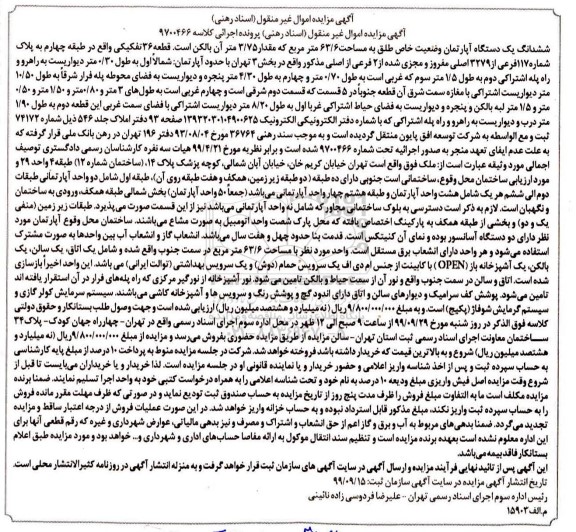 آگهی مزایده اموال غیر منقول (اسناد رهنی)
آگهی مزایده اموال غیر منقول (اسناد رهنی) پرونده اجرائی کلاسه ۹۷۰۰۴۶۶
ششدانگ یک دستگاه آپارتمان وضعیت خاص طلق به مساحت ۶۳/۶ متر مربع که مقدار ۳/۷۵ متر آن بالکن است. قطعه ۳۶ تفکیکی واقع در طبقه چهارم به پلاک
شماره ۱۱۷ فرعی از ۳۲۷۹ اصلی مفروز و مجزی شده از ۲ فرعی از اصلی مذکور واقع در بخش ۳ تهران با حدود آپارتمان: شمالاً اول به طول ۰/۳۰ متر دیواریست به راهرو و
راه پله اشتراکی دوم به طول ۱/۵ متر سوم که غربی است به طول ۰/۷۰ متر و چهارم به طول ۴/۳۰ متر پنجره و دیواریست به فضای محوطه پله فرار شرقاً به طول ۱۰/۵۰
متر دیواریست اشتراکی با مغازه سمت شرق آن قطعه جنوباً در ۵ قسمت که قسمت دوم شرقی است و چهارم غربی است به طول‌های ۳ متر و ۰/۸۰ متر و ۱/۵۰ متر و ۰/۵۰
متر و ۱/۵ متر لبه بالکن و پنجره و دیواریست به فضای حیاط اشتراکی غرباً اول به طول ۸/۲۰ متر دیواریست اشتراکی با فضای سمت غربی این قطعه دوم به طول ۱/۹۰
متر درب و دیواریست به راهرو و راه پله اشتراکی که با شماره دفتر الکترونیکی الکترونیک ۱۳۹۳۲۰۳۰۱۰۴۹۰۰۶۲۵ صفحه ۹۳ دفتر املاک جلد ۵۴۶ ذیل شماره ۷۴۱۷۲
ثبت و مع الواسطه به شرکت توسعه افق پایون منتقل گردیده است و به موجب سند رهنی ۳۶۷۶۴ مورخ ۹۳/۰۸/۰۴ دفتر ۱۹۶ تهران در رهن بانک ملی قرار گرفته که
به علت عدم ایفای تعهد منجر به صدور اجرائیه تحت شماره ۹۷۰۰۴۶۶ شده است و برابر نظریه مورخ ۹۹/۴/۲۱ هیات سه نفره کارشناسان رسمی دادگستری توصیف
اجمالی مورد وثیقه عبارت است از: ملک فوق واقع است تهران خیابان کریم خان، خیابان آبان شمالی، کوچه پزشک پلاک ۱۴، (ساختمان شماره ۱۲) طبقه ۴ واحد ۲۹ و
مورد ارزیابی ساختمان محل وقوع، ساختمانی است جنوبی دارای ده طبقه (دو طبقه زیر زمین، همکف و هفت طبقه روی آن)، طبقه اول شامل دو واحد آپارتمانی طبقات
دوم الی ششم هر یک شامل هشت واحد آپارتمان و طبقه هشتم چهار واحد آپارتمانی می‌باشد (جمعاً ۵۰ واحد آپارتمان) بخش شمالی طبقه همکف، ورودی به ساختمان
و نگهبان است. لازم به ذکر است دسترسی به بلوک ساختمان مجاور که شامل نه واحد آپارتمانی می‌باشد نیز از این قسمت صورت می‌پذیرد. طبقات زیر زمین (منفی
یک و دو) و بخشی از طبقه همکف به پارکینگ اختصاص یافته که محل پارک شصت واحد اتومبیل به صورت مشاع می‌باشند. ساختمان محل وقوع آپارتمان مورد
نظر دارای دو دستگاه آسانسور بوده و نمای آن کنیتکس است. قدمت بنا حدود چهل و هفت سال می‌باشد. انشعاب گاز و انشعاب آب بین واحدها به صورت مشترک
استفاده می‌شود و هر واحد دارای انشعاب برق مستقل است. واحد مورد نظر با مساحت ۶۳/۶ متر مربع در سمت جنوب واقع شده و شامل یک اتاق، یک سالن، یک
بالکن، یک آشپزخانه باز (OPEN) با کابینت از جنس ام دی اف یک سرویس حمام (دوش) و یک سرویس بهداشتی (توالت ایرانی) می باشد. این واحد اخیراً بازسازی
شده است. اتاق و سالن در سمت جنوب واقع و نور آن از سمت حیاط و بالکن تامین می شود. نور آشپزخانه از نورگیر مرکزی که راه پله‌های فرار در آن استقرار یافته اند
تامین می‌شود. پوشش کف سرامیک و دیوارهای سالن و اتاق دارای اندود گچ و پوشش رنگ و سرویس ها و آشپزخانه کاشی می‌باشند. سیستم سرمایش کولر گازی و
سیستم گرمایش شوفاژ (پکیج) است. و به مبلغ ۹/۸۰۰/۰۰۰/۰۰۰ ریال (نه میلیارد و هشتصد میلیون ریال) ارزیابی شده است و جهت وصول طلب بستانکار و حقوق دولتی
کلاسه فوق الذکر در روز شنبه مورخ ۹۹/۰۹/۲۹ از ساعت ۹ صبح الی ۱۲ ظهر در محل اداره سوم اجرای اسناد رسمی واقع در تهران - چهارراه جهان کودک - پلاک ۳۴
ساختمان معاونت اجرای اسناد رسمی ثبت استان تهران - سالن مزایده از طریق مزایده حضوری بفروش می‌رسد و مزایده از مبلغ ۹/۸۰۰/۰۰۰/۰۰۰ ریال (نه میلیارد و
هشتصد میلیون ریال) شروع و به بالاترین قیمت که خریدار داشته باشد فروخته خواهد شد. شرکت در جلسه مزایده منوط به پرداخت ۱۰ درصد از مبلغ پایه کارشناسی
به حساب سپرده ثبت و پس از اخذ شناسه واریز اعلامی و حضور خریدار و یا نماینده قانونی او در جلسه مزایده است. لذا خریدار و یا خریداران می‌بایست تا قبل از
شروع وقت مزایده اصل فیش واریزی مبلغ ودیعه ۱۰ درصد به نام خود و تحت شناسه اعلامی را به همراه درخواست کتبی خود به واحد اجرا تسلیم نمایند. ضمنا برنده
مزایده مکلف است ما به التفاوت مبلغ فروش را ظرف مدت پنج روز از تاریخ مزایده به حساب صندوق ثبت تودیع نماید و در صورتی که ظرف مهلت مقرر مانده فروش
را به حساب سپرده ثبت واریز نکند، مبلغ مذکور قابل استرداد نبوده و به حساب خزانه واریز خواهد شد. در این صورت عملیات فروش از درجه اعتبار ساقط و مزایده
تجدید می‌گردد. ضمنا بدهی‌های مربوط به آب و برق و گاز اعم از حق انشعاب و اشتراک و مصرف و نیز بدهی مالیاتی، عوارض شهرداری و غیره که رقم قطعی آنها برای
این اداره معلوم نشده است بعهده برنده مزایده است و تنظیم سند انتقال موکول به ارائه مفاصا حساب‌های اداری و شهرداری و... خواهد بود و مورد مزایده طبق اعلام
بستانکار فاقد بیمه می‌باشد.
این آگهی پس از تائید نهایی فرآیند مزایده و ارسال آگهی در سایت آگهی های سازمان ثبت قرار خواهد گرفت و به منزله انتشار آگهی در روزنامه کثیرالانتشار محلی است.
تاریخ انتشار آگهی مزایده در سایت آگهی سازمان ثبت: ۹۹/۰۹/۱۵
رئیس اداره سوم اجرای اسناد رسمی تهران - علیرضا فردوسی زاده نائینی
م.الف ۱۵۹۰۳